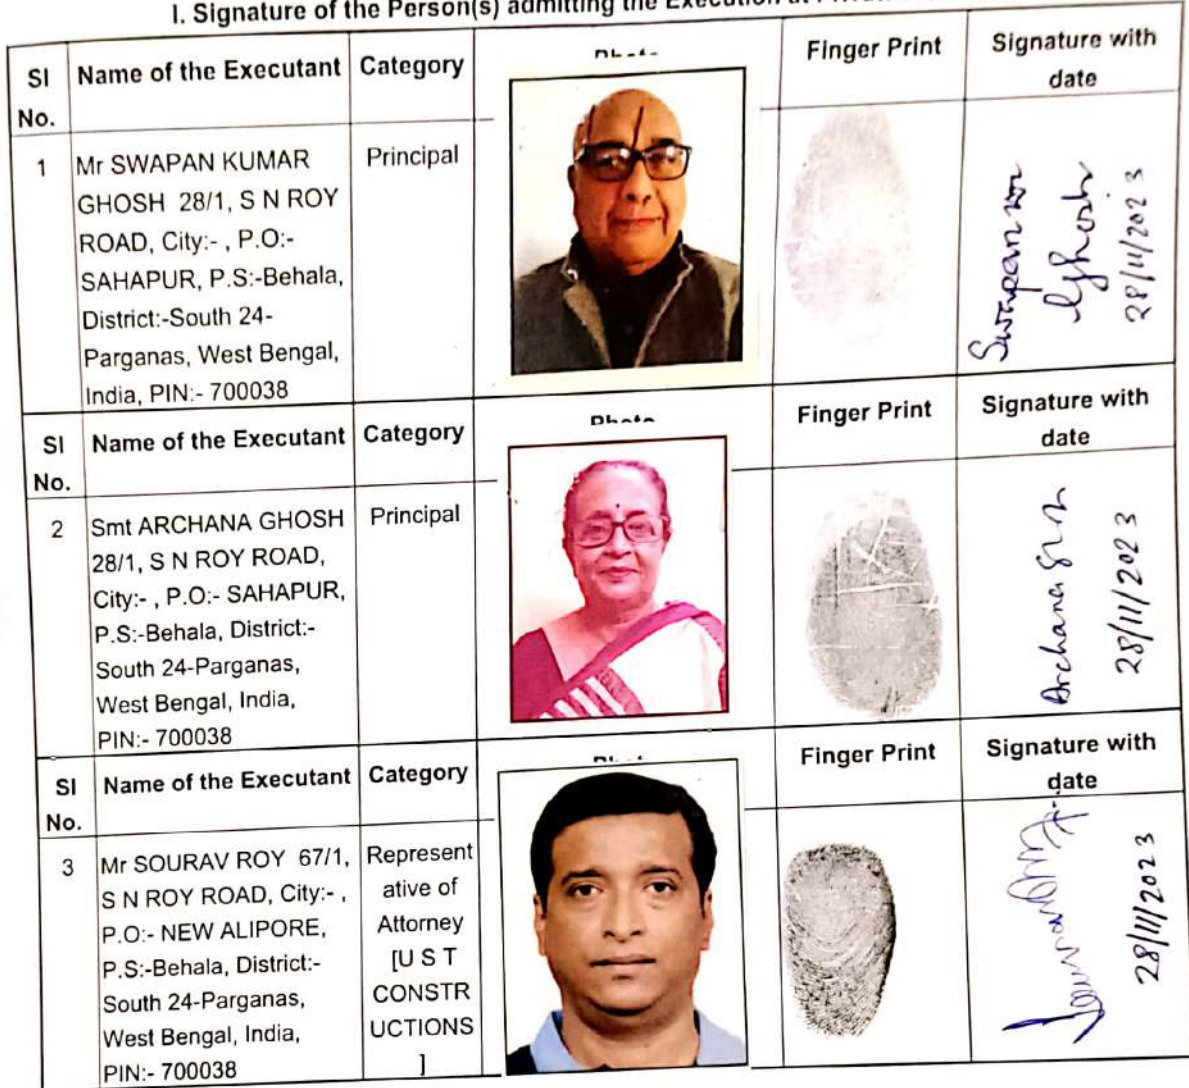 I. Signature of the Person(s) admitting the Execution at
Sl No. Name of the Executant Category Finger Print Signature with date
1 Mr SWAPAN KUMAR GHOSH 28/1, S N ROY ROAD, City:- , P.O:- SAHAPUR, P.S:-Behala, District:-South 24-Parganas, West Bengal, India, PIN:- 700038
Principal
Swapan Kr
Ghosh
28/11/2023
Sl No. Name of the Executant Category Photo Finger Print Signature with date
2 Smt ARCHANA GHOSH 28/1, S N ROY ROAD, City:- , P.O:- SAHAPUR, P.S:-Behala, District:- South 24-Parganas, West Bengal, India, PIN:- 700038
Principal
Archana
28/11/2023
Sl No. Name of the Executant Category Finger Print Signature with date
3 Mr SOURAV ROY 67/1, S N ROY ROAD, City:- , P.O:- NEW ALIPORE, P.S:-Behala, District:- South 24-Parganas, West Bengal, India, PIN:- 700038
Representative of Attorney [U S T CONSTRUCTIONS ]
28/11/2023